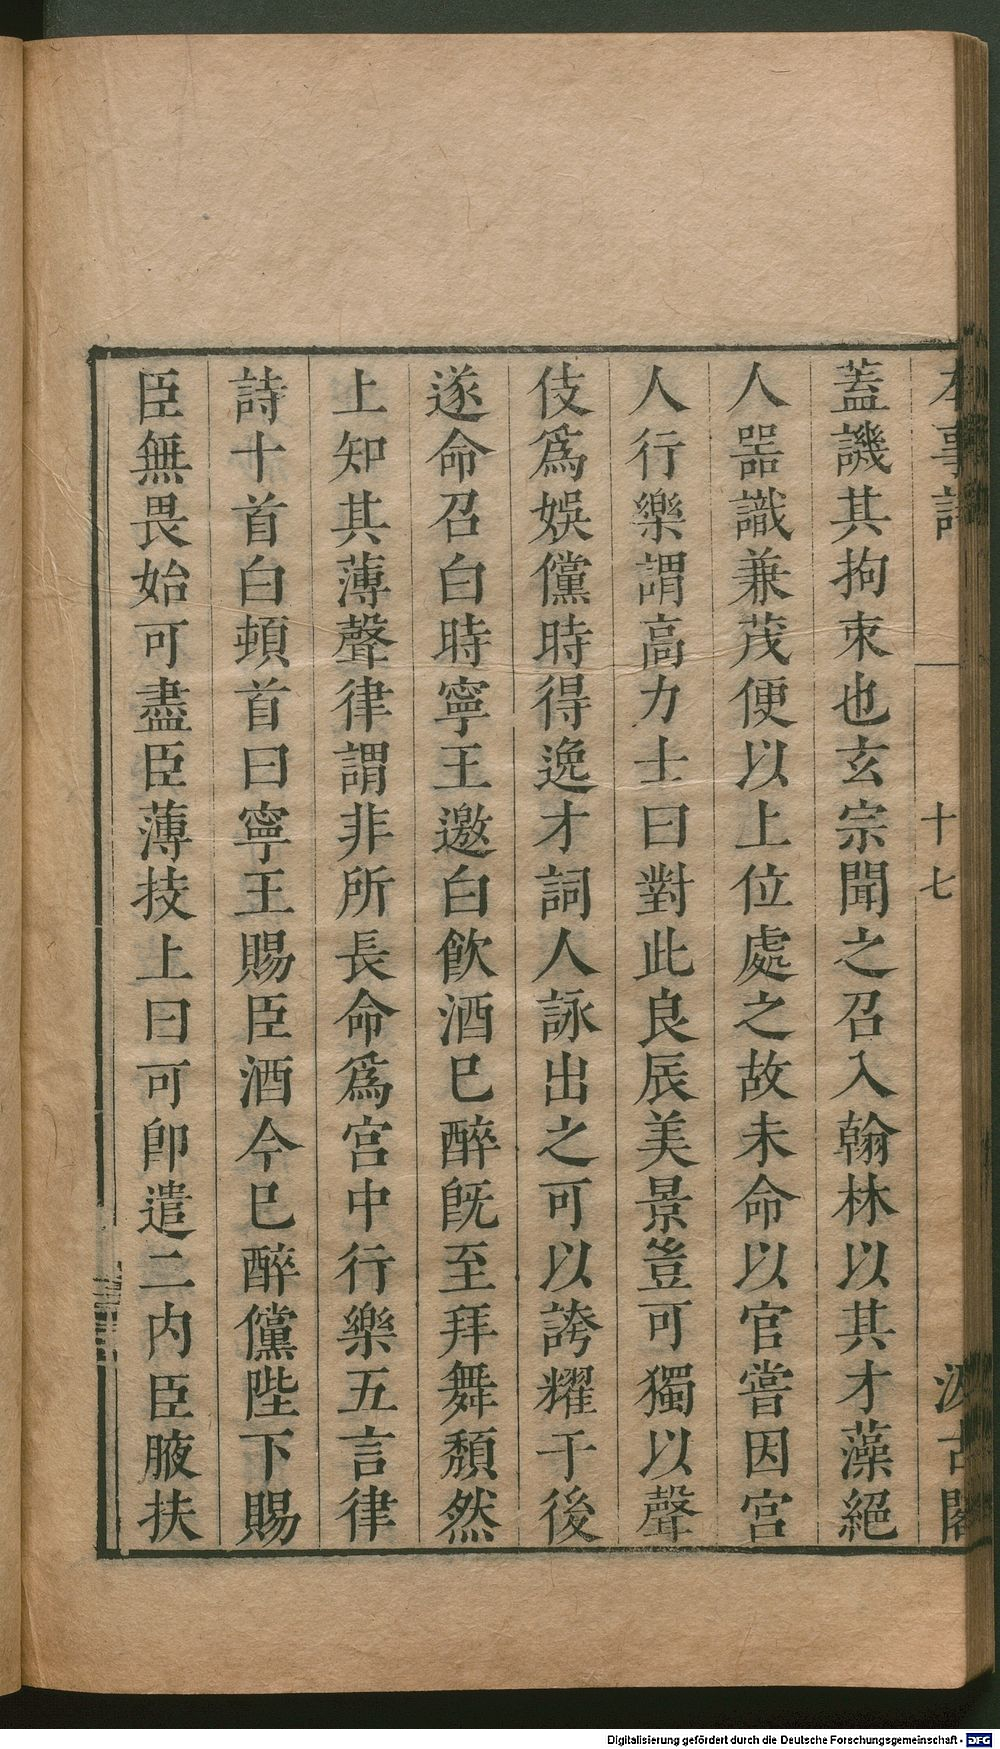 本事詩 十七 汲古閣
蓋譏其拘束也玄宗聞之召入翰林以其才藻絕
人器識兼茂便以上位處之故未命以官嘗因宮
人行樂謂高力士曰對此良辰美景豈可獨以聲
伎爲娛儻時得逸才詞人詠出之可以誇耀于後
遂命召白時寧王邀白飲酒已醉旣至拜舞頹然
上知其薄聲律謂非所長命爲宮中行樂五言律
詩十首白頓首曰寧王賜臣酒今已醉儻陛下賜
臣無畏始可盡臣薄技上曰可卽遣二内臣腋扶
Digitalisierung gefördert durch die Deutsche Forschungsgemeinschaft - DFG